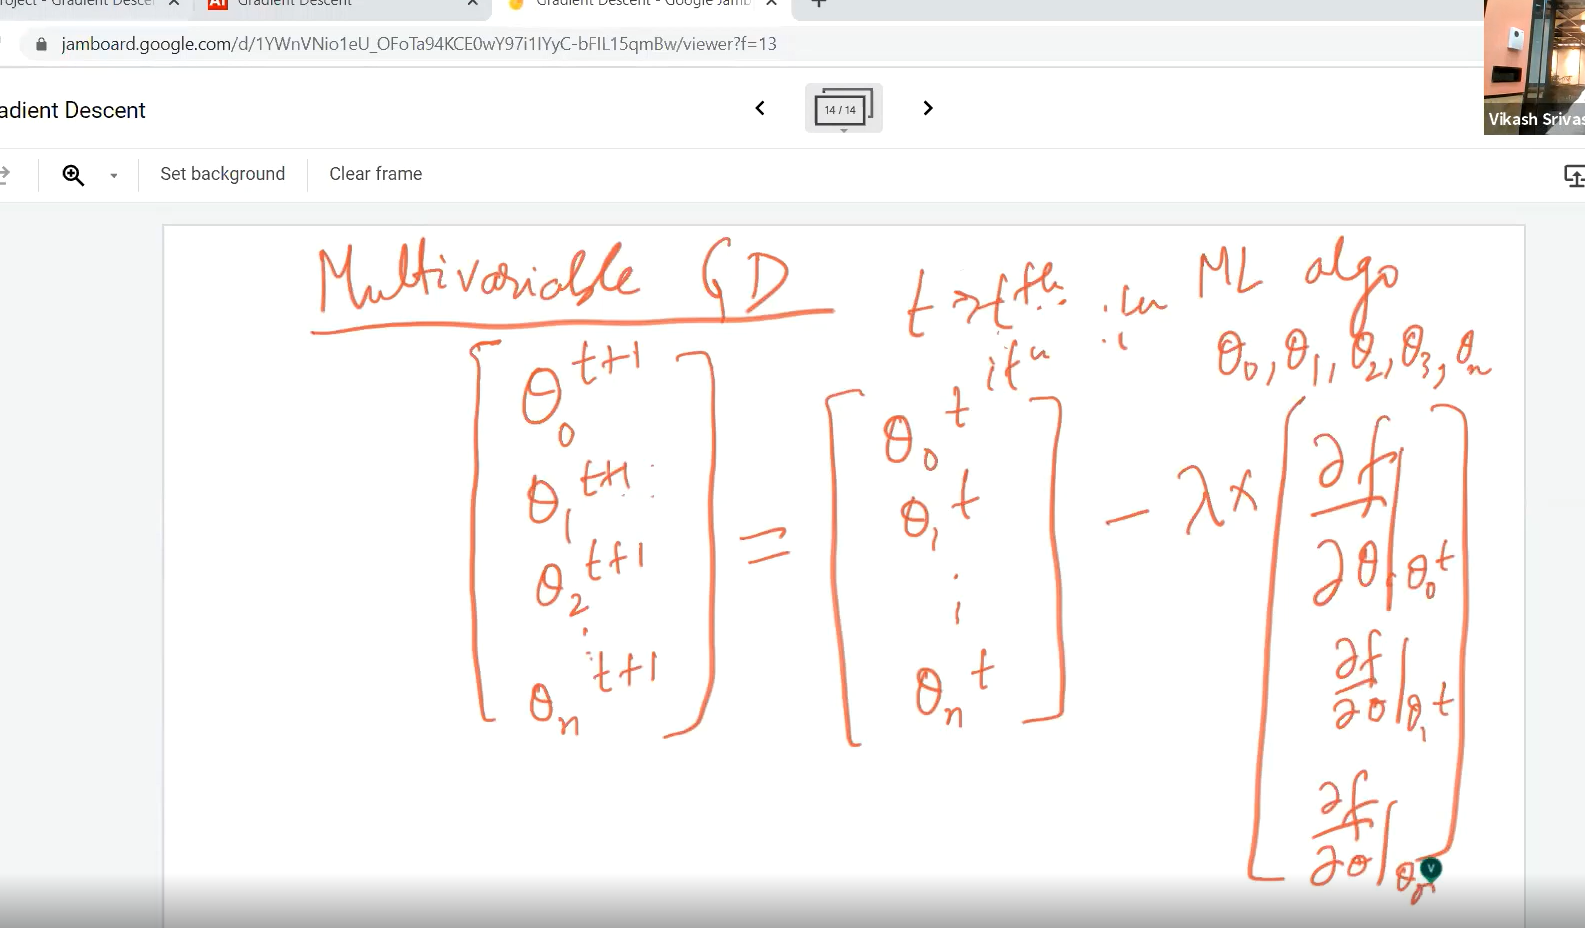 Gradient Descent
Gradient Descent - Google Jamb
jamboard.google.com/d/1YWnVNio1eU_OFoTa94KCE0wY97i1IYyC-bFIL15qmBw/viewer?f=13
adient Descent
14 / 14
Vikash Srivas
Set background
Clear frame
Multivariable GD
t → tth
ML algo
θ0, θ1, θ2, θ3, θn
[θ0^t+1 θ1^t+1 θ2^t+1 ⋮ θn^t+1] = [θ0^t θ1^t ⋮ θn^t] − λ × [∂f/∂θ|θ0^t ∂f/∂θ|θ1^t ∂f/∂θ|θn]
V